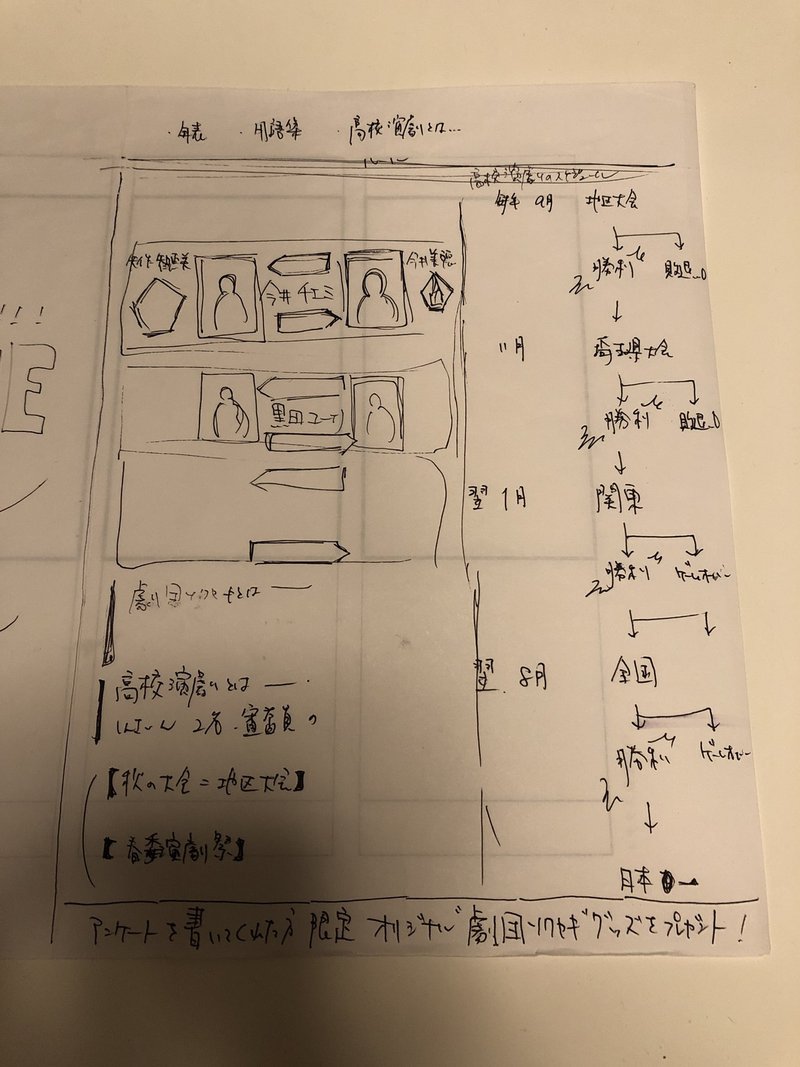 ・年表 ・用語集 ・高校演劇とは…
高校演劇のスケジュール
毎年 9月 地区大会
勝利 敗退
今井 チエミ
11月 埼玉県大会
勝利 敗退
黒田
翌 1月 関東
勝利 ゲームオーバー
劇団 とは
翌 8月 全国
高校演劇とは
2名 審査員の
勝利 ゲームオーバー
【秋の大会=地区大会】
【春季演劇祭】
日本一
アンケートを書いてくれた方 限定 オリジナル 劇団 グッズをプレゼント!